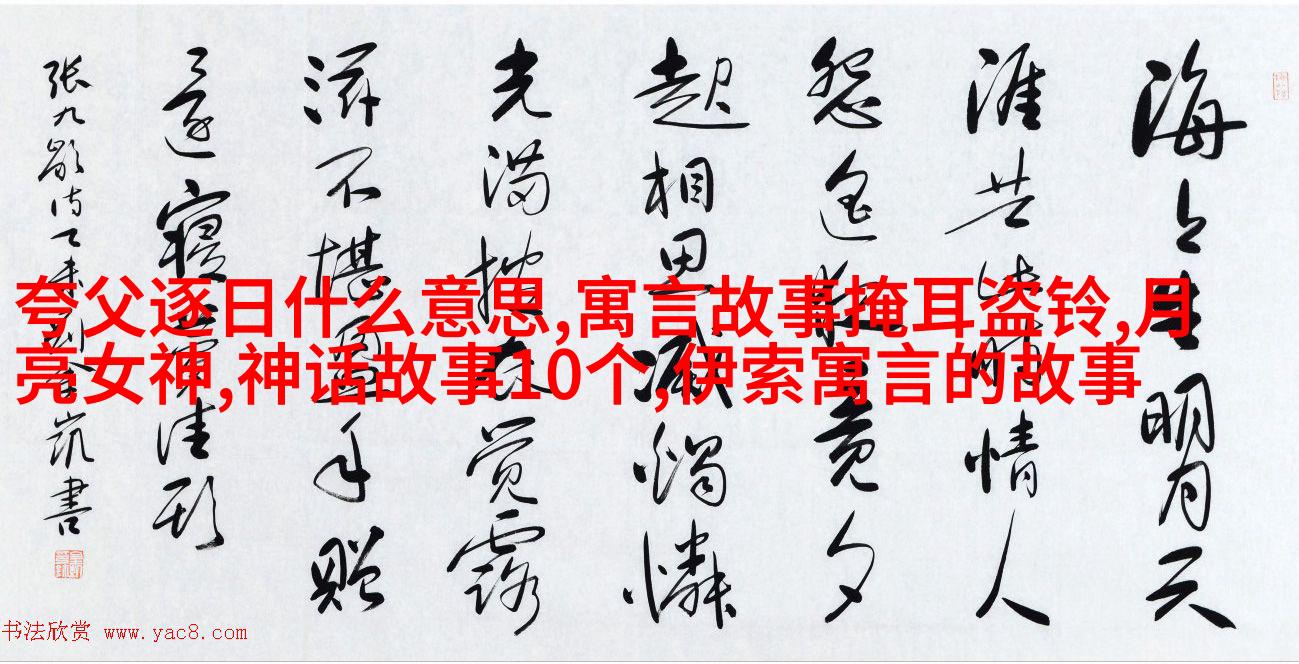 海上生明月天
涯共此时情人
怨遥夜竟夕
起相思滅烛憐
光满披衣觉露
滋不堪盈手赠
还寝梦佳期
张九龄诗乙未 書
夸父逐日什么意思,寓言故事掩耳盗铃,月
亮女神,神话故事10个,伊索寓言的故事
书法欣赏 www.yac8.com